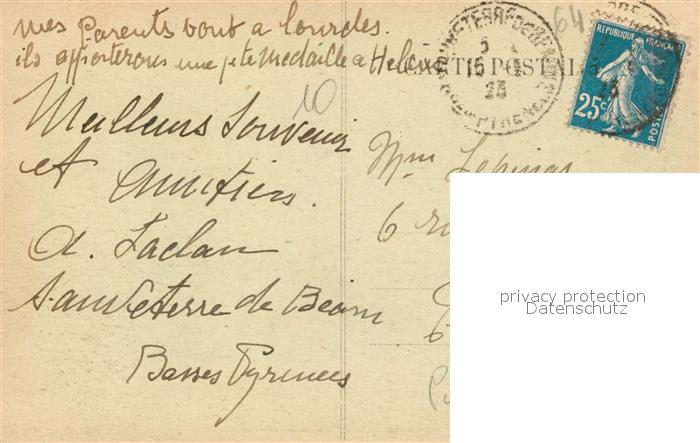 mes Parents vont a lourdes.
ils apporterons une pte medaille a Helene
CARTE POSTALE
SAUVETERRE DE BEARN
5
15
23
64
REPUBLIQUE FRANÇAISE
25c
POSTES
10
Meilleurs Souvenir
et Amitiés.
a. Laclau
Sauveterre de Bearn
Basses Pyrenees
Mme Lepinas
6 ru
privacy protection
Datenschutz